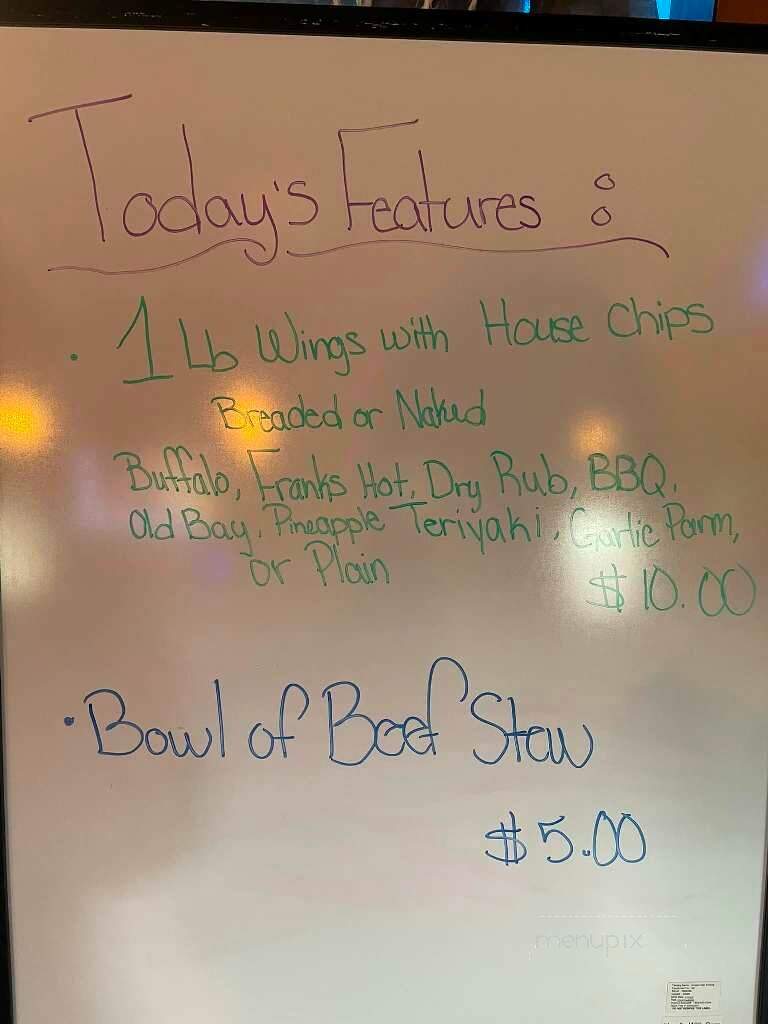 Today's Features :
• 1 Lb Wings with House Chips
Breaded or Naked
Buffalo, Franks Hot, Dry Rub, BBQ,
Old Bay, Pineapple Teriyaki, Garlic Parm,
or Plain
$10.00
• Bowl of Beef Stew
$5.00
menupix